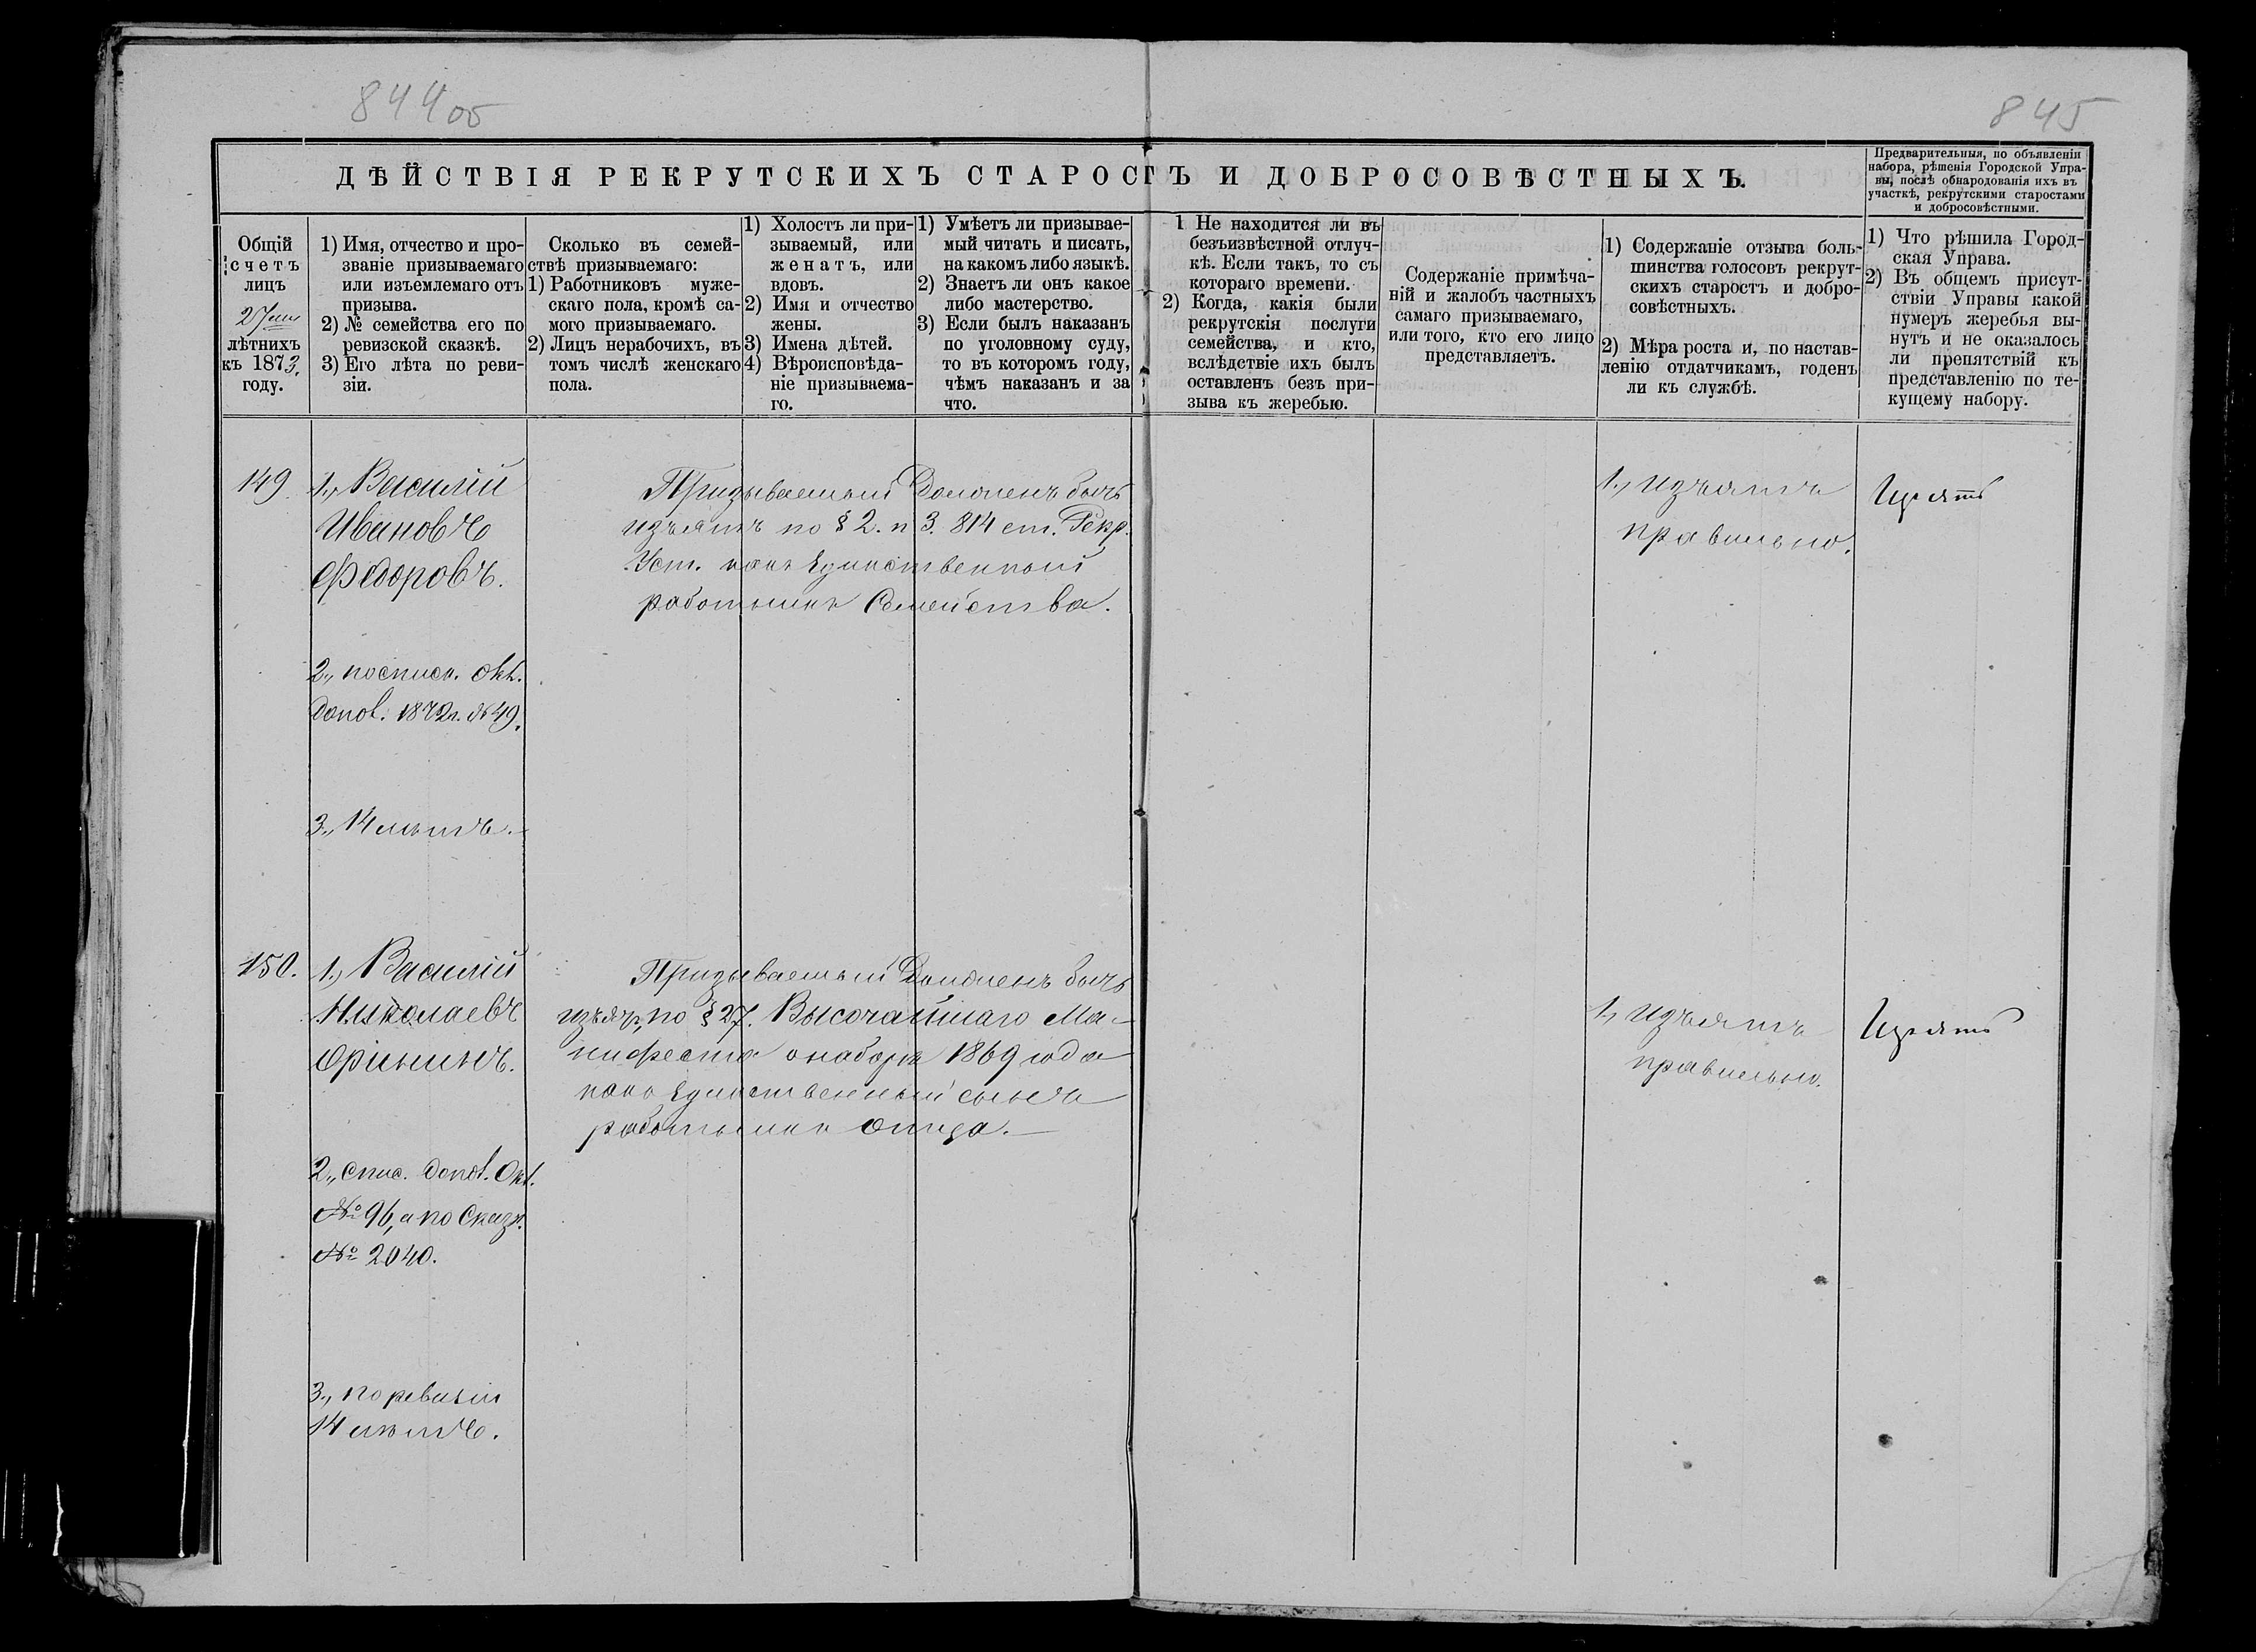 844об
845
ДѢЙСТВІЯ РЕКРУТСКИХЪ СТАРОСТЪ И ДОБРОСОВѢСТНЫХЪ.
Предварительныя, по объявленіи
набора, рѣшенія Городской Упра-
вы, послѣ обнародованія ихъ въ
участкѣ, рекрутскими старостами
и добросовѣстными.
Общій
счетъ
лицъ
27ми
лѣтнихъ
къ 1873,
году.
1) Имя, отчество и про-
званіе призываемаго
или изъемлемаго отъ
призыва.
2) № семейства его по
ревизской сказкѣ.
3) Его лѣта по реви-
зіи.
Сколько въ семей-
ствѣ призываемаго:
1) Работниковъ муже-
скаго пола, кромѣ са-
мого призываемаго.
2) Лицъ нерабочихъ, въ
томъ числѣ женскаго
пола.
1) Холостъ ли при-
зываемый, или
женатъ, или
вдовъ.
2) Имя и отчество
жены.
3) Имена дѣтей.
4) Вѣроисповѣда-
ніе призываема-
го.
1) Умѣетъ ли призывае-
мый читать и писать,
на какомъ либо языкѣ.
2) Знаетъ ли онъ какое
либо мастерство.
3) Если былъ наказанъ
по уголовному суду,
то въ которомъ году,
чѣмъ наказанъ и за
что.
1 Не находится ли въ
безъизвѣстной отлуч-
кѣ. Если такъ, то съ
котораго времени.
2) Когда, какія были
рекрутскія послуги
семейства, и кто,
вслѣдствіе ихъ былъ
оставленъ безъ при-
зыва къ жеребью.
Содержаніе примѣча-
ній и жалобъ частныхъ
самаго призываемаго,
или того, кто его лицо
представляетъ.
1) Содержаніе отзыва боль-
шинства голосовъ рекрут-
скихъ старостъ и добро-
совѣстныхъ.
2) Мѣра роста и, по настав-
ленію отдатчикамъ, годенъ
ли къ службѣ.
1) Что рѣшила Город-
ская Управа.
2) Въ общемъ присут-
ствіи Управы какой
нумеръ жеребья вы-
нутъ и не оказалось
ли препятствій къ
представленію по те-
кущему набору.
149.
1., Василій
Ивановъ
Федоровъ.
2., по списк. Окл.
допол. 1872г. № 49.
3., 14 лѣтъ.
Призываемый Долженъ быть
изъятъ по § 2. п 3. 814 ст. Рекр.
Уст. какъ Единственный
работникъ Семейства.
1., Изъятъ
правильно.
Изъять
150.
1.) Василій
Николаевъ
2., Спис. допол. Окл.
№ 96, а по Сказк.
№ 2040.
3., по ревизіи
14 лѣтъ.
Призываемый Долженъ быть
изъят, по § 27. Высочайшаго Ма-
нифеста о наборѣ 1869 года
какъ Единственный сынъ
работникъ Отца.
1., Изъятъ
правильно.
Изъять